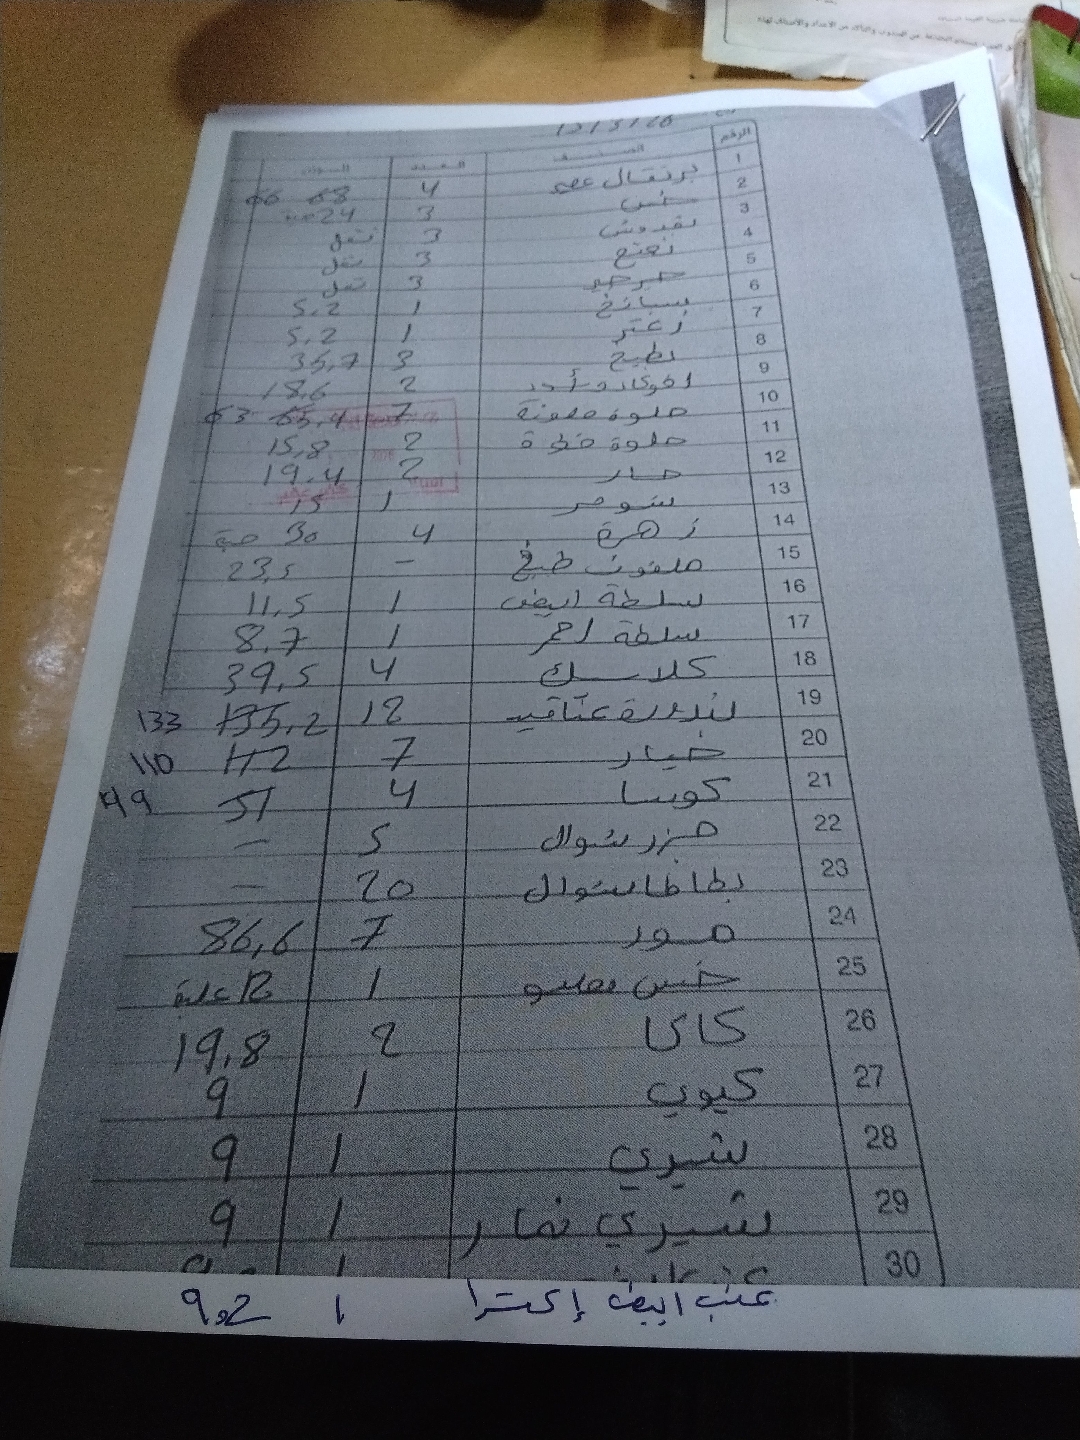 12/3/26
الرقم الصنف العدد الوزن
1 برتقال عصير 4 68 66
2 خس 3 24 حبة
3 بقدونس 3 شتل
4 نعنع 3 شتل
5 جرجير 3 شتل
6 سبانخ 1 5,2
7 زعتر 1 5,2
8 بطيخ 3 35,7
9 افوكادو 2 18,6
10 حلوة ملونة 7 65,4 63
11 حلوة خضرة 2 15,8
12 حار 2 19,4
13 شومر 1 15
14 زهرة 4 30 حبة
15 ملفوف طبخ - 23,5
16 سلطة ابيض 1 11,5
17 سلطة احمر 1 8,7
18 كلاسك 4 39,5
19 بندورة عناقيد 12 135,2 133
20 خيار 7 112 110
21 كوسا 4 51 49
22 جزر شوال 5 -
23 بطاطا شوال 20 -
24 موز 7 86,6
25 خس 1 12 علبة
26 كاكا 2 19,8
27 كيوي 1 9
28 شيري 1 9
29 شيري 1 9
30
عنب ابيض إكسترا 1 9,2